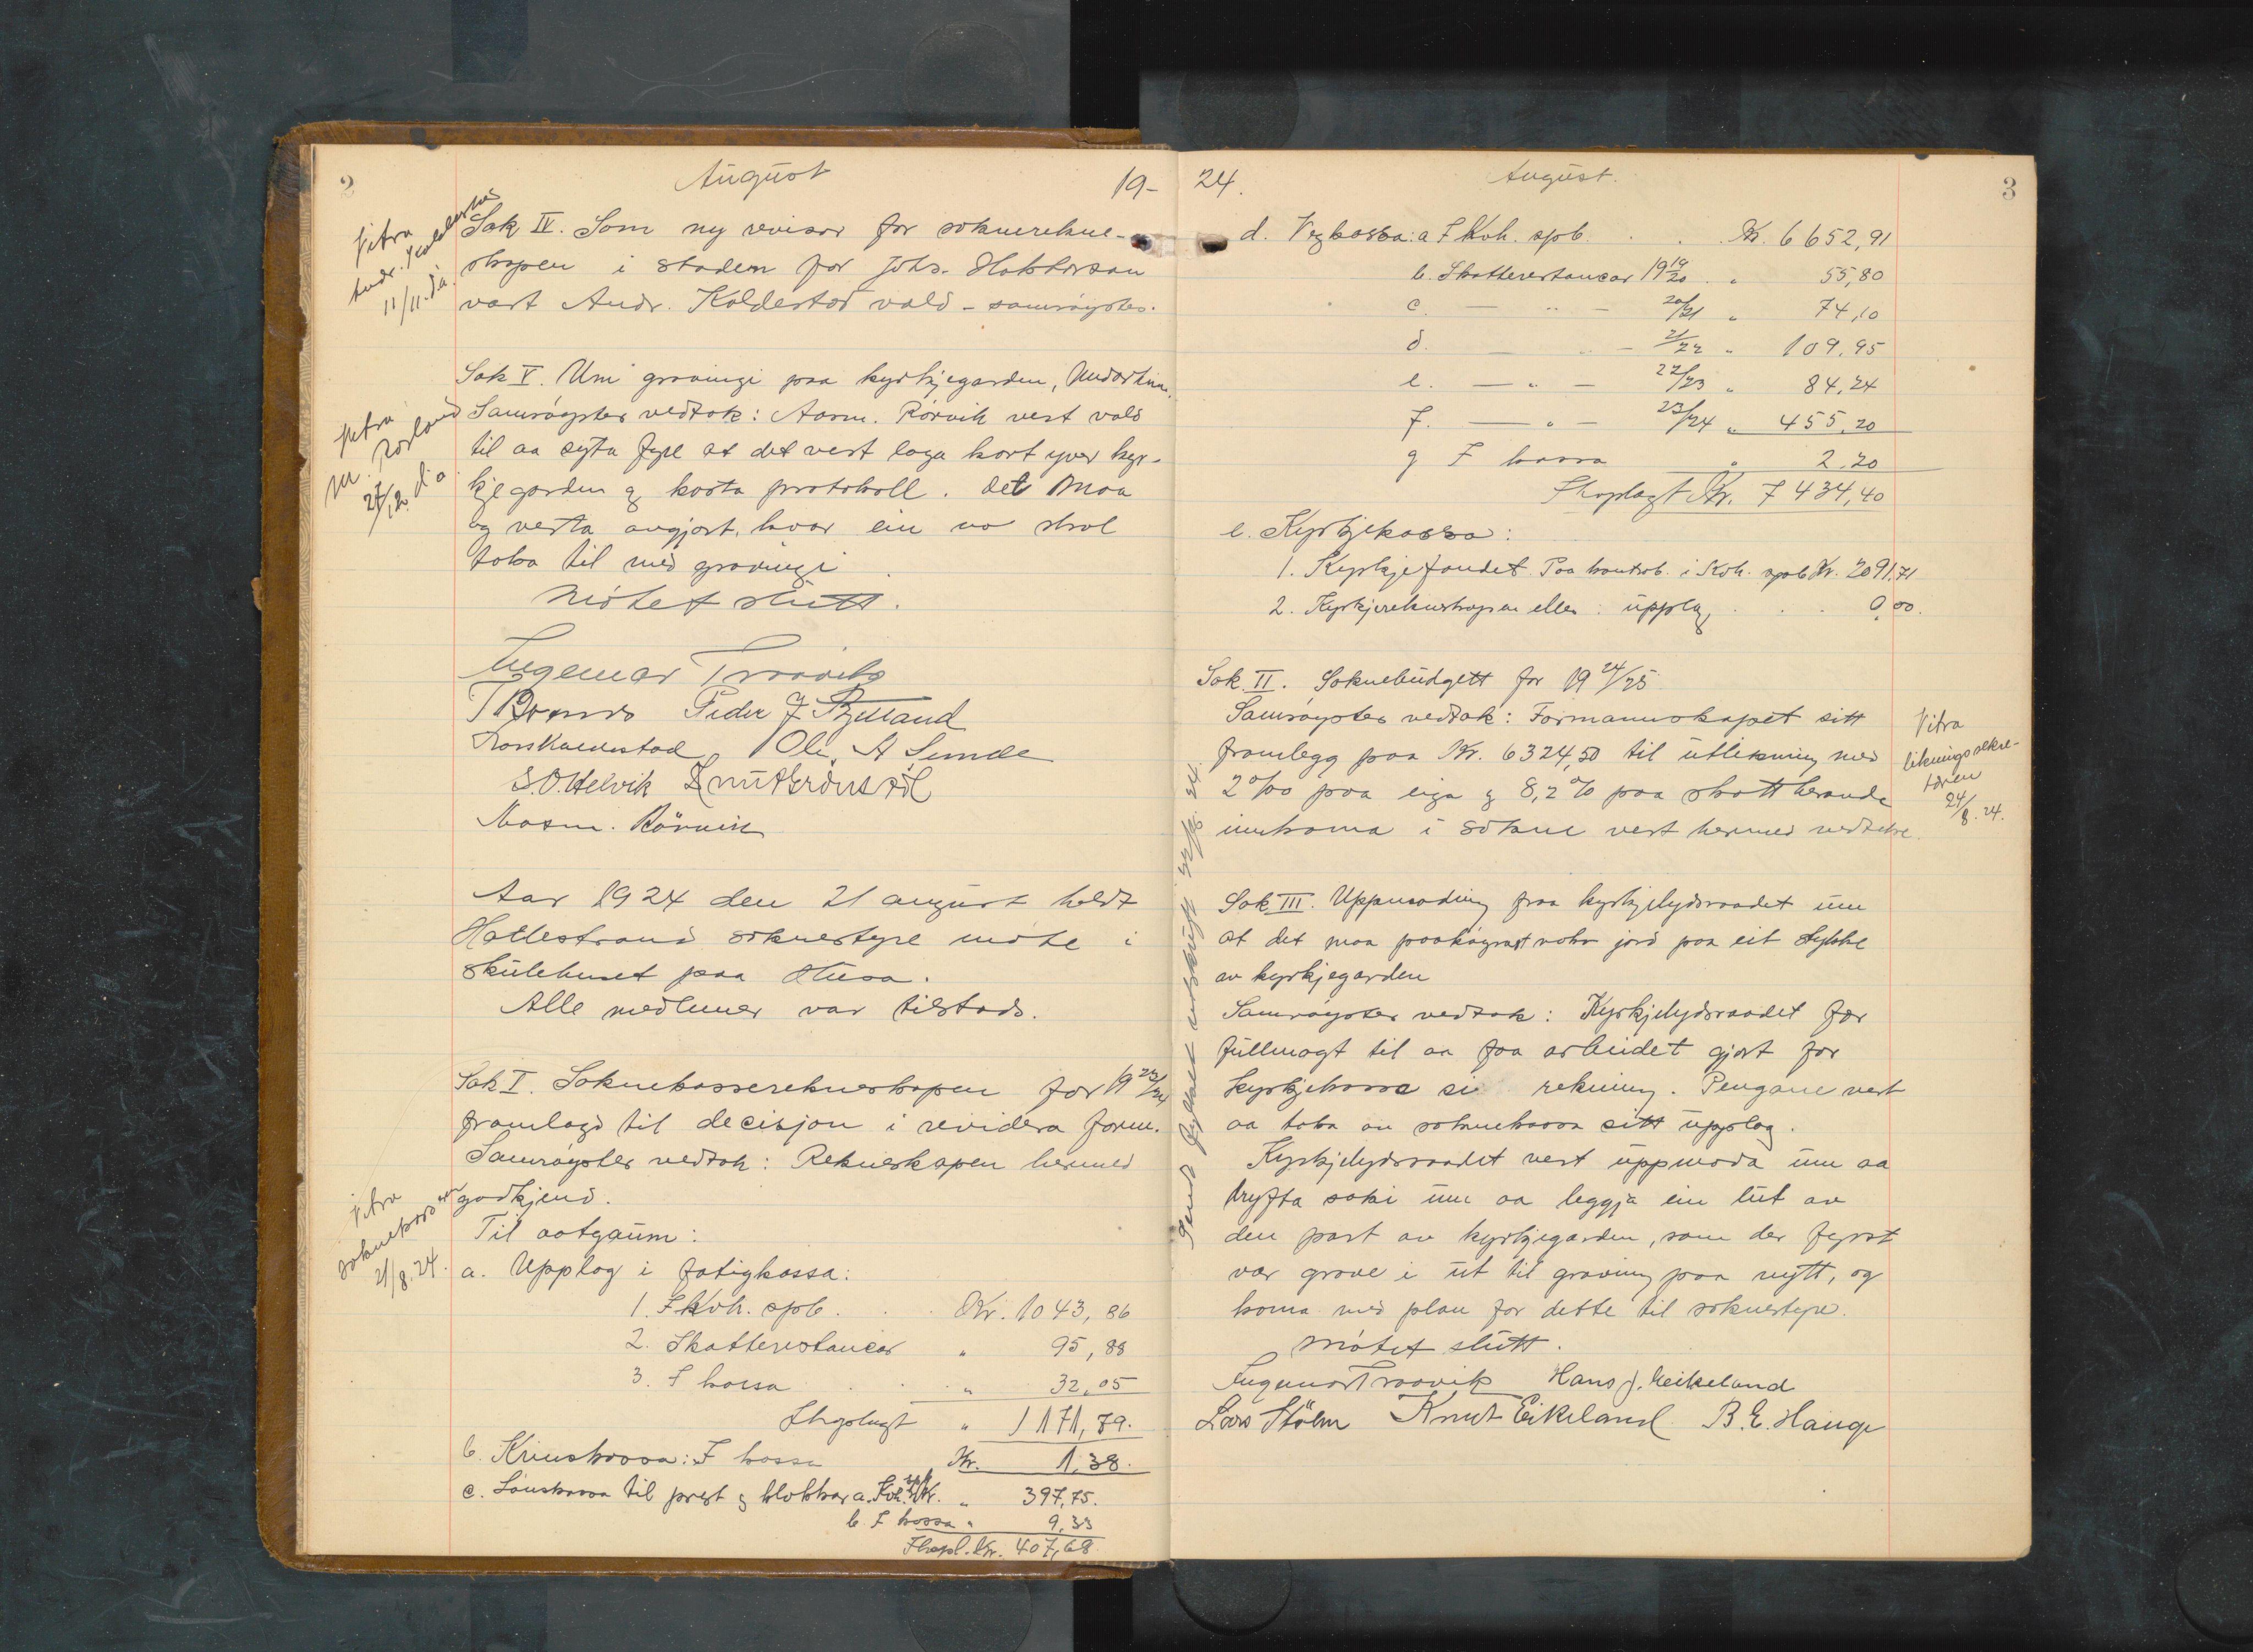 2
August
19-
Vitra
Andr. Koldestad
11/11. d.å.
Sak IV. Som ny revisor for soknerekne-
skapen i staden for Johs. Haktorson
vart Andr. Koldestad vald - samröystes.
Sak V. Um gravingi paa kyrkjegarden, Undarheim.
Samröystes vedtak: Aasm. Rörvik vert vald
til aa syta fyre at det vert laga kart yver kyr-
kjegarden og karta protokoll. Det maa
og verta avgjort, kvar ein no skal
taka til med gravingi.
Vitra
M. Rörland
27/12. d.å.
Mötet slutt.
Ingemar Traavik
T Brands Peder J. Bjelland
Lars Kaldestad Ole A Sunde
S.O. Helvik Knut Grönstöl
Aasm. Rörvik
Aar 1924 den 21 august heldt
Hatlestrand soknestyre möte i
skulehuset paa Husa.
Alle medlemer var tilstads.
Sak I. Soknekasserekneskapen for 19 23/24
framlagd til decisjon i revidera form.
Samröystes vedtak: Rekneskapen hermed
godkjend.
Vitra
soknekasseraren
21/8. 24.
Til aatgaum:
a. Upplag i fatigkassa:
1. I Kvh. spb. . . Kr. 1043,86
2. Skatterestansar " 95,88
3. I kassa . . " 32,05
Ihoplagt " 1171,79.
b. Krinskassa: I kassa Kr. 1,38.
c. Lönskassa til prest og klokkar a. I Kvh. spb. Kr. " 397,75.
b. I kassa " 9,33
Ihopl. Kr. 407,68
24.
August.
3
d. Vegkassa: a I Kvh. spb. . . Kr. 6652,91
b. Skatterestansar 19 19/20 . " 55,80
c. — " — 20/21 " 74,10
d. — " — 21/22 " 109,95
e. — " — 22/23 " 84,24
f. — " — 23/24 " 455,20
g I kassa " 2,20
Ihoplagt Kr. 7434,40
e. Kyrkjekassa:
1. Kyrkjefondet. Paa bankb. i Kvh. spb Kr. 2091,71
2. Kyrkjerekneskapen elles: upplag . . . 0,00.
Sak II. Soknebudgett for 19 24/25
Samröystes vedtak: Formannskapet sitt
framlegg paa Kr. 6324,50 til utlikning med
2 ‰ paa eiga og 8,2 % paa skattberande
innkoma i sokne vert hermed vedteke.
Vitra
likningssekre-
tæren
24/8. 24.
Sak III. Uppmoding fraa kyrkjelydsraadet um
at det maa paaköyrast noko jord paa eit stykke
av kyrkjegarden
Samröystes vedtak: Kyrkjelydsraadet fær
fullmagt til aa faa arbeidet gjort for
kyrkjekassa si rekning. Pengane vert
aa taka av soknekassa sitt upplag.
Kyrkjelydsraadet vert uppmoda um aa
dryfta saki um aa leggja ein lut av
den part av kyrkjegarden, som der fyrst
var grave i ut til graving paa nytt, og
koma med plan for dette til soknestyre.
Mötet slutt.
Ingemar Traavik Hans J. Neikeland
Lars Stölen Knut Eikeland B. E. Hauge